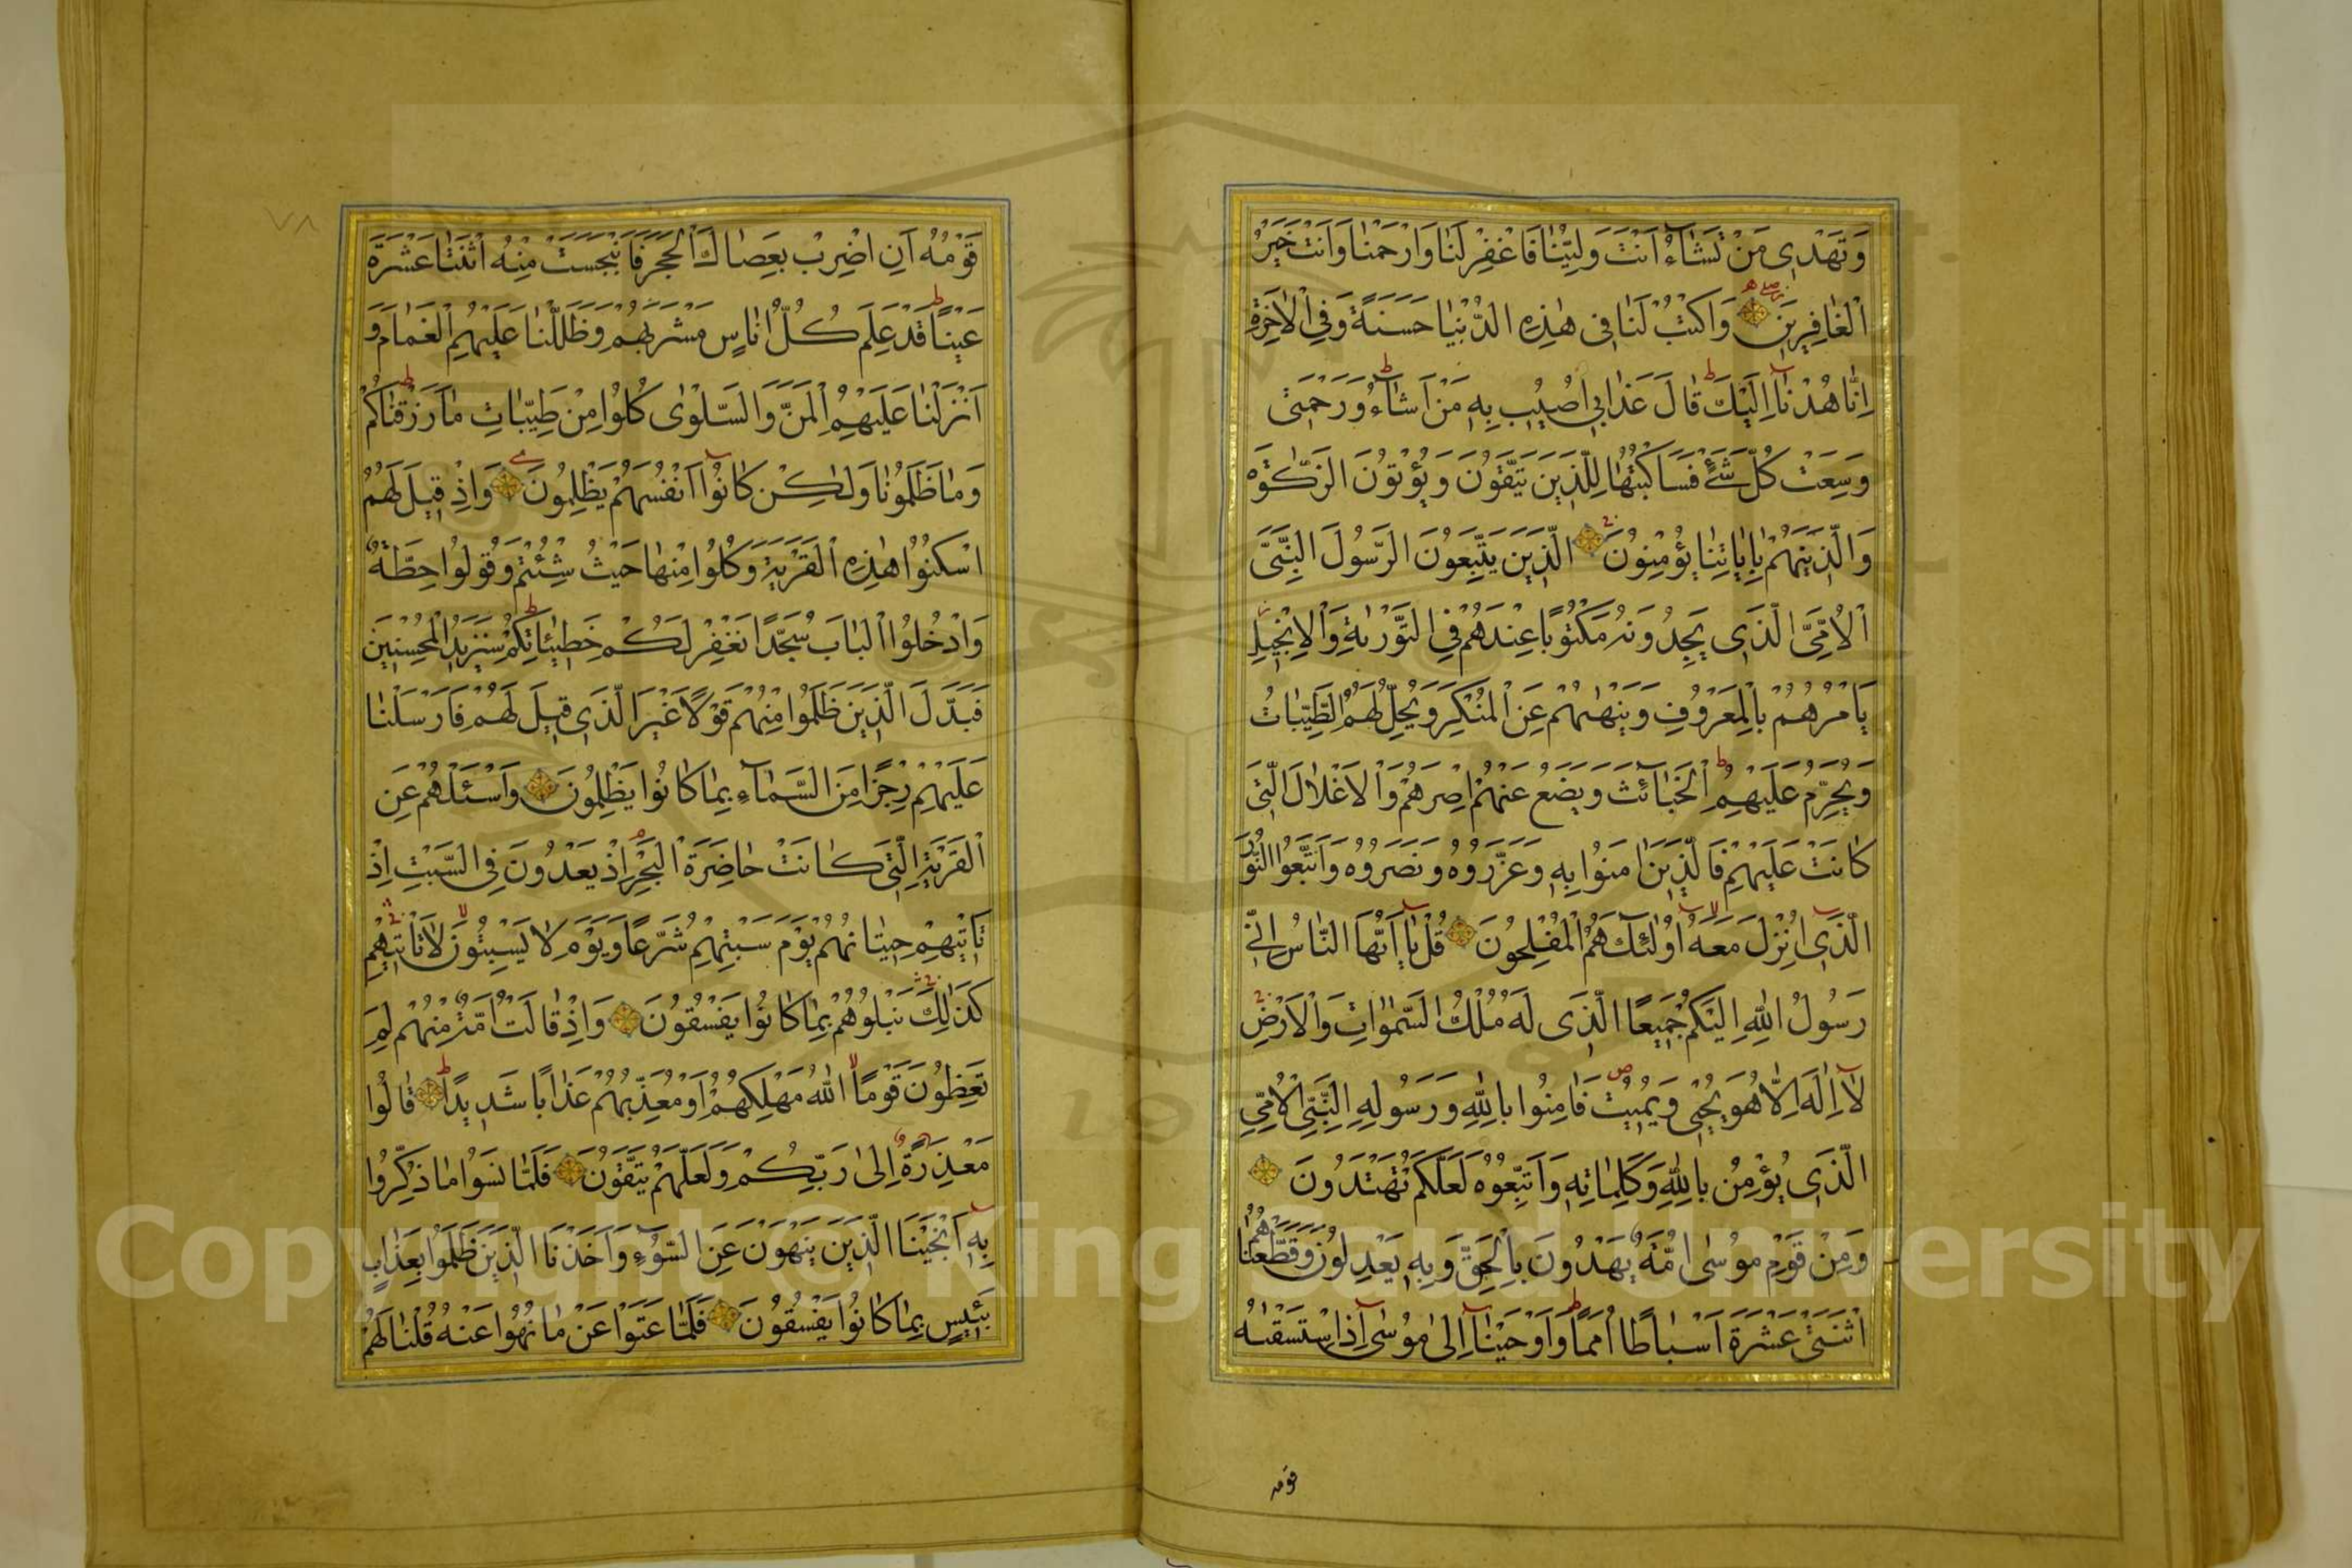 وَتَهْدِي مَنْ تَشَاءُ اَنْتَ وَلِيُّنَا فَاغْفِرْ لَنَا وَارْحَمْنَا وَاَنْتَ خَيْرُ
الْغَافِرِينَ وَاكْتُبْ لَنَا فِي هٰذِهِ الدُّنْيَا حَسَنَةً وَفِي الْاٰخِرَةِ
اِنَّا هُدْنَا اِلَيْكَ قَالَ عَذَابِي اُصِيبُ بِهِ مَنْ اَشَاءُ وَرَحْمَتِي
وَسِعَتْ كُلَّ شَيْءٍ فَسَاَكْتُبُهَا لِلَّذِينَ يَتَّقُونَ وَيُؤْتُونَ الزَّكٰوةَ
وَالَّذِينَ هُمْ بِاٰيَاتِنَا يُؤْمِنُونَ الَّذِينَ يَتَّبِعُونَ الرَّسُولَ النَّبِيَّ
الْاُمِّيَّ الَّذِي يَجِدُونَهُ مَكْتُوبًا عِنْدَهُمْ فِي التَّوْرٰيةِ وَالْاِنْجِيلِ
يَاْمُرُهُمْ بِالْمَعْرُوفِ وَيَنْهٰيهُمْ عَنِ الْمُنْكَرِ وَيُحِلُّ لَهُمُ الطَّيِّبَاتِ
وَيُحَرِّمُ عَلَيْهِمُ الْخَبَائِثَ وَيَضَعُ عَنْهُمْ اِصْرَهُمْ وَالْاَغْلَالَ الَّتِي
كَانَتْ عَلَيْهِمْ فَالَّذِينَ اٰمَنُوا بِهِ وَعَزَّرُوهُ وَنَصَرُوهُ وَاتَّبَعُوا النُّورَ
الَّذِي اُنْزِلَ مَعَهُ اُولٰئِكَ هُمُ الْمُفْلِحُونَ قُلْ يَا اَيُّهَا النَّاسُ اِنِّي
رَسُولُ اللّٰهِ اِلَيْكُمْ جَمِيعًا الَّذِي لَهُ مُلْكُ السَّمٰوَاتِ وَالْاَرْضِ
لَا اِلٰهَ اِلَّا هُوَ يُحْيِي وَيُمِيتُ فَاٰمِنُوا بِاللّٰهِ وَرَسُولِهِ النَّبِيِّ الْاُمِّيِّ
الَّذِي يُؤْمِنُ بِاللّٰهِ وَكَلِمَاتِهِ وَاتَّبِعُوهُ لَعَلَّكُمْ تَهْتَدُونَ
وَمِنْ قَوْمِ مُوسٰى اُمَّةٌ يَهْدُونَ بِالْحَقِّ وَبِهِ يَعْدِلُونَ وَقَطَّعْنَاهُمُ
اثْنَتَيْ عَشْرَةَ اَسْبَاطًا اُمَمًا وَاَوْحَيْنَا اِلٰى مُوسٰى اِذِ اسْتَسْقٰيهُ
قومه
٧٨
قَوْمُهُ اَنِ اضْرِبْ بِعَصَاكَ الْحَجَرَ فَانْبَجَسَتْ مِنْهُ اثْنَتَا عَشْرَةَ
عَيْنًا قَدْ عَلِمَ كُلُّ اُنَاسٍ مَشْرَبَهُمْ وَظَلَّلْنَا عَلَيْهِمُ الْغَمَامَ وَ
اَنْزَلْنَا عَلَيْهِمُ الْمَنَّ وَالسَّلْوٰى كُلُوا مِنْ طَيِّبَاتِ مَا رَزَقْنَاكُمْ
وَمَا ظَلَمُونَا وَلٰكِنْ كَانُوا اَنْفُسَهُمْ يَظْلِمُونَ وَاِذْ قِيلَ لَهُمُ
اسْكُنُوا هٰذِهِ الْقَرْيَةَ وَكُلُوا مِنْهَا حَيْثُ شِئْتُمْ وَقُولُوا حِطَّةٌ
وَادْخُلُوا الْبَابَ سُجَّدًا نَغْفِرْ لَكُمْ خَطِيئَاتِكُمْ سَنَزِيدُ الْمُحْسِنِينَ
فَبَدَّلَ الَّذِينَ ظَلَمُوا مِنْهُمْ قَوْلًا غَيْرَ الَّذِي قِيلَ لَهُمْ فَاَرْسَلْنَا
عَلَيْهِمْ رِجْزًا مِنَ السَّمَاءِ بِمَا كَانُوا يَظْلِمُونَ وَاسْئَلْهُمْ عَنِ
الْقَرْيَةِ الَّتِي كَانَتْ حَاضِرَةَ الْبَحْرِ اِذْ يَعْدُونَ فِي السَّبْتِ اِذْ
تَاْتِيهِمْ حِيتَانُهُمْ يَوْمَ سَبْتِهِمْ شُرَّعًا وَيَوْمَ لَا يَسْبِتُونَ لَا تَاْتِيهِمْ
كَذٰلِكَ نَبْلُوهُمْ بِمَا كَانُوا يَفْسُقُونَ وَاِذْ قَالَتْ اُمَّةٌ مِنْهُمْ لِمَ
تَعِظُونَ قَوْمًا اللّٰهُ مُهْلِكُهُمْ اَوْ مُعَذِّبُهُمْ عَذَابًا شَدِيدًا قَالُوا
مَعْذِرَةً اِلٰى رَبِّكُمْ وَلَعَلَّهُمْ يَتَّقُونَ فَلَمَّا نَسُوا مَا ذُكِّرُوا
بِهِ اَنْجَيْنَا الَّذِينَ يَنْهَوْنَ عَنِ السُّوءِ وَاَخَذْنَا الَّذِينَ ظَلَمُوا بِعَذَابٍ
بَئِيسٍ بِمَا كَانُوا يَفْسُقُونَ فَلَمَّا عَتَوْا عَنْ مَا نُهُوا عَنْهُ قُلْنَا لَهُمْ
Copyright © King Saud University